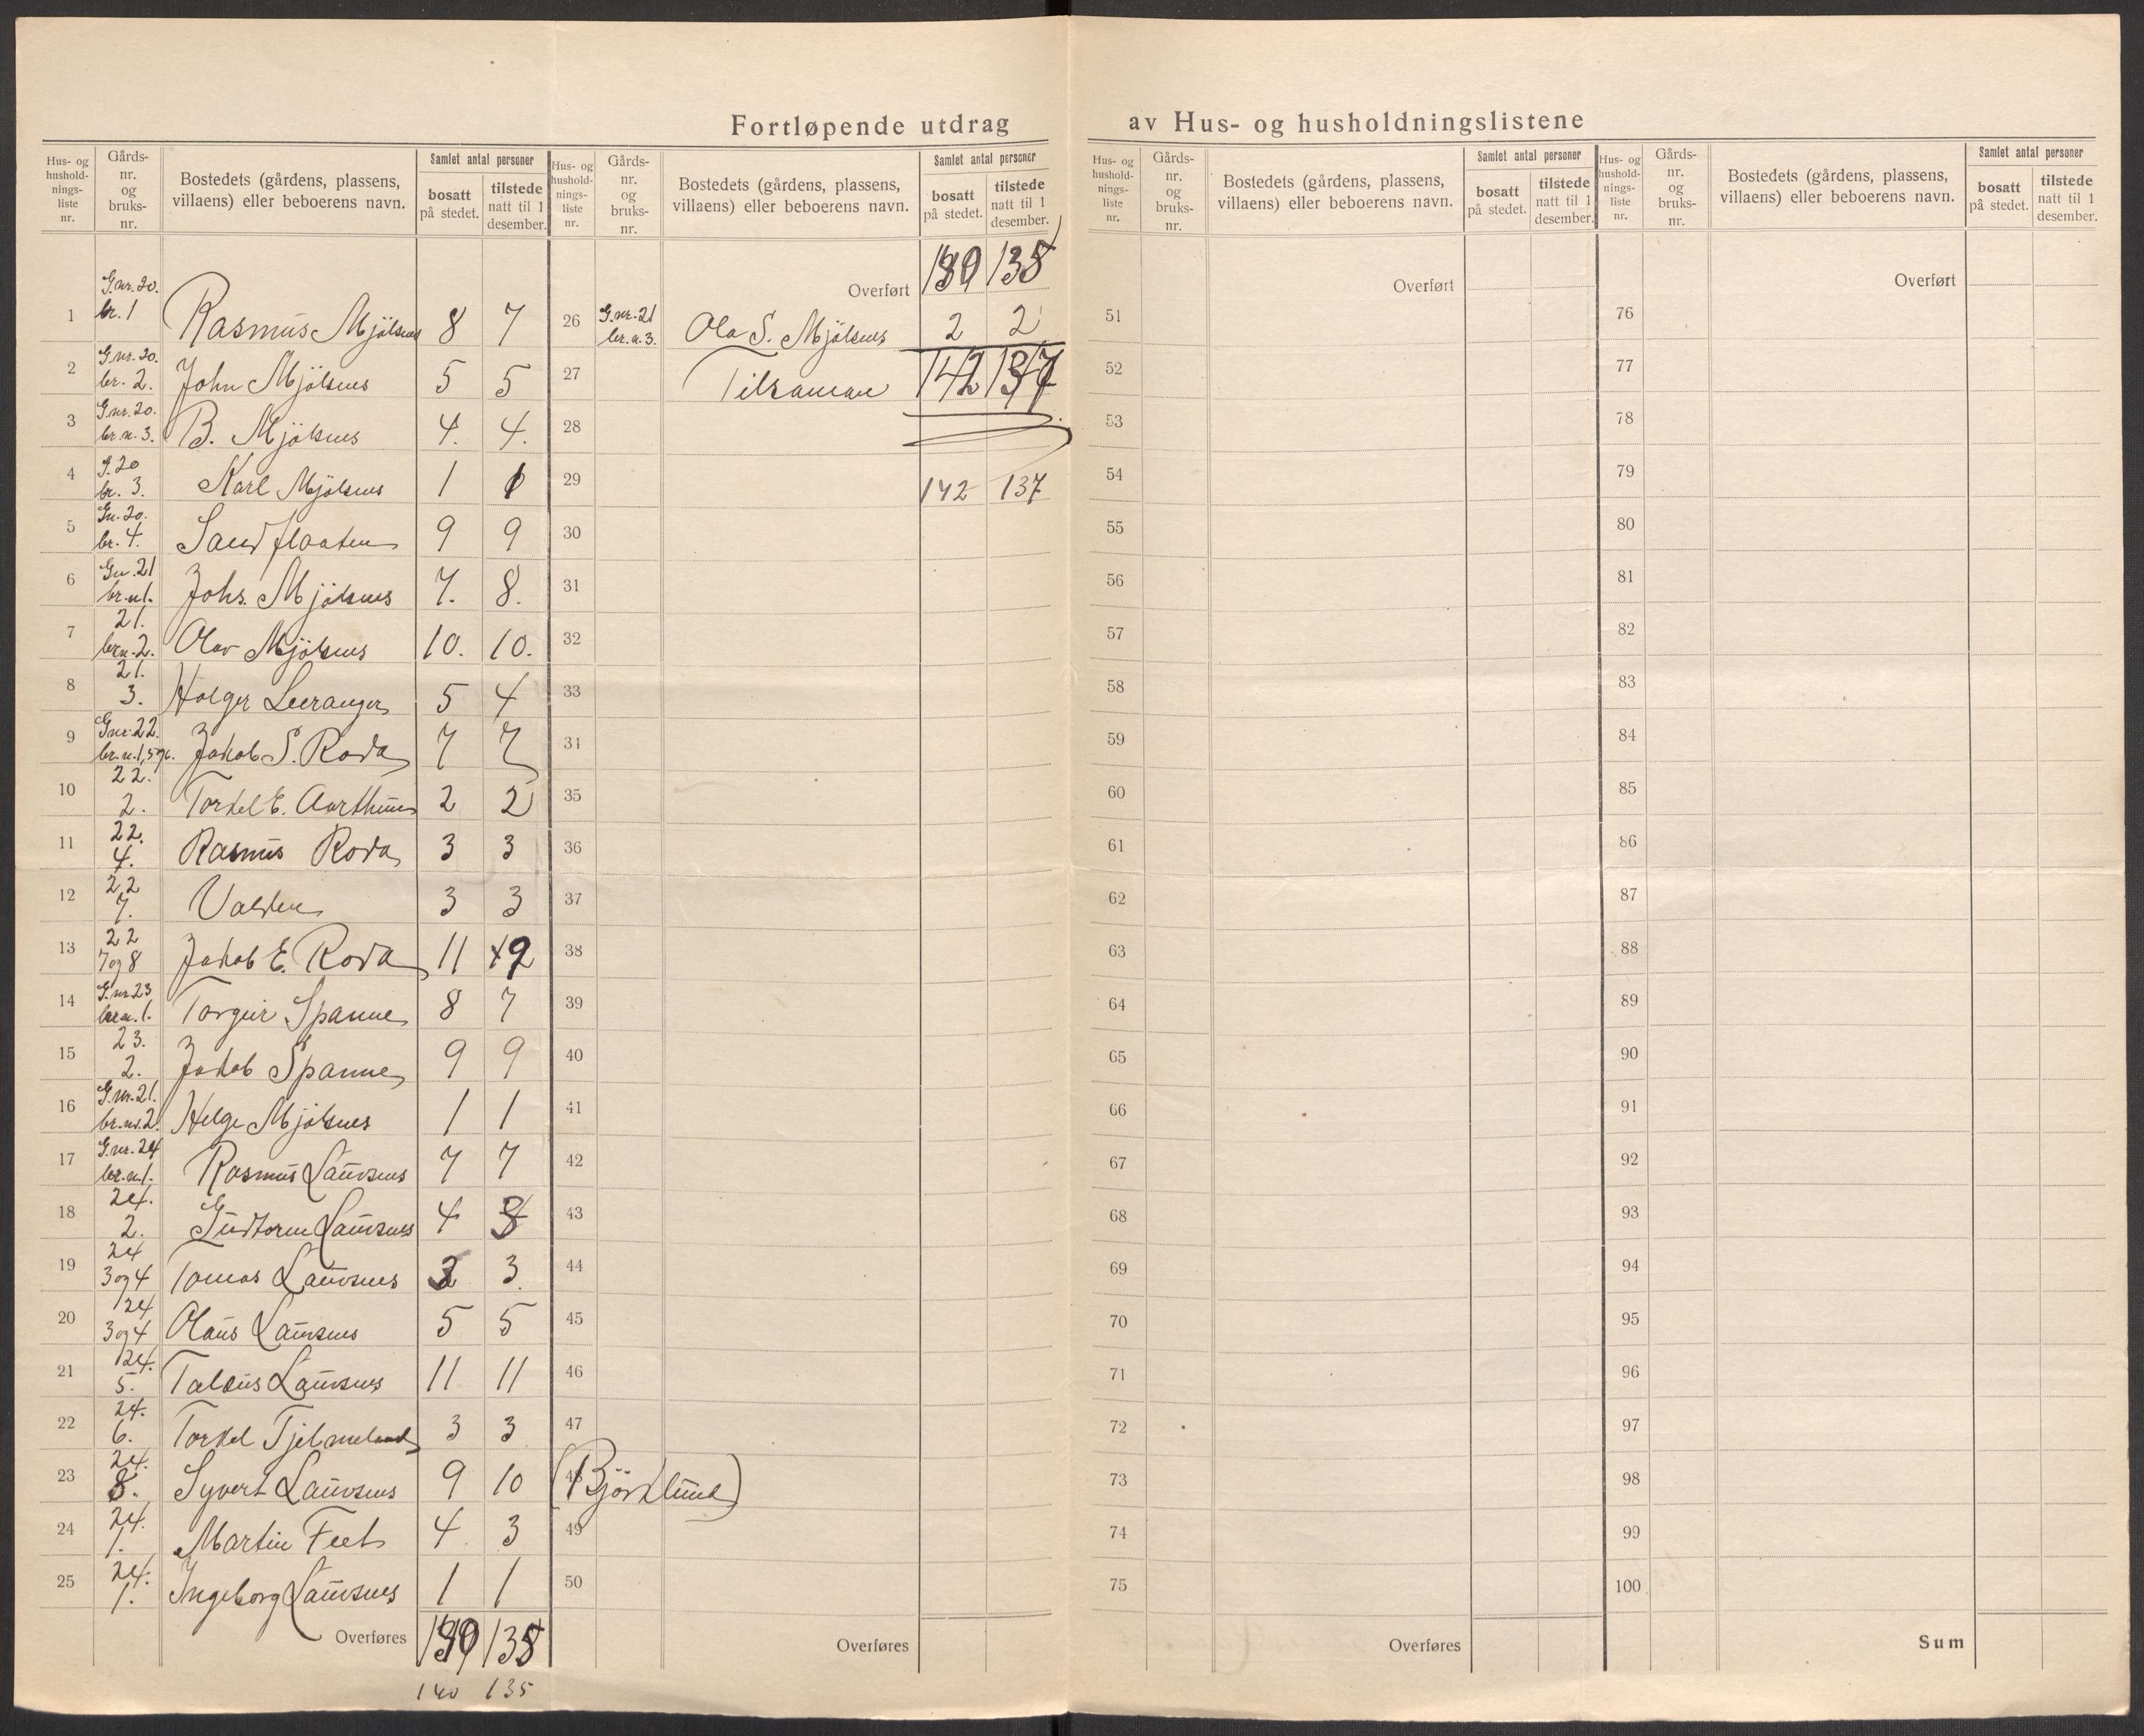 Fortløpende utdrag av Hus- og husholdningslistene
Hus- og hushold-nings-liste nr. | Gårds-nr. og bruks-nr. | Bostedets (gårdens, plassens, villaens) eller beboerens navn. | Samlet antal personer | bosatt på stedet. | tilstede natt til 1 desember.
1 G.nr. 20. br. 1 Rasmus Mjölsnes 8 7
2 G.nr. 20. br. 2. John Mjölsnes 5 5
3 G.nr. 20. br.n. 3. B. Mjölsnes 4. 4.
4 G. 20 br. 3. Karl Mjölsnes 1
5 Gn. 20. br. 4. Sandflaaten 9 9
6 Gn. 21 br.n 1. Johs. Mjölsnes 7. 8.
7 21. br.n. 2. Olav Mjölsnes 10. 10.
8 21. 3. Holger Leeranger 5 4
9 Gnr. 22. br.n. 1, 5 og 6. Jakob S. Roda 7 7
10 22. 2. Torkel E. Aarthun 2 2
11 22. 4. Rasmus Roda 3 3
12 22 7. Valden 3 3
13 22 7 og 8 Jakob E. Roda 11 9
14 G.nr. 23 br.n. 1. Torgeir Spanne 8 7
15 23. 2. Jakob Spanne 9 9
16 G.nr. 21. br.nr. 2. Helge Mjölsnes 1 1
17 G.nr. 24 br.n. 1. Rasmus Lauvsnes 7 7
18 24. 2. Gudtorm Lauvsnes 4 3
19 24 3 og 4 Tomas Lauvsnes 3 3.
20 24 3 og 4 Olaus Lauvsnes 5 5
21 24. 5. Taleus Lauvsnes 11 11
22 24. 6. Torkel Tjelmeland 3 3
23 24. 8. Syvert Lauvsnes 9 10 (Björklund)
24 24. 1. Martin Feet 4 3
25 24. 1. Ingeborg Lauvsnes 1 1
Overføres 135
140 135
Hus- og hushold-nings-liste nr. | Gårds-nr. og bruks-nr. | Bostedets (gårdens, plassens, villaens) eller beboerens navn. | Samlet antal personer | bosatt på stedet. | tilstede natt til 1 desember.
Overført 135
26 G.nr. 21 br.n. 3. Ola S. Mjölsnes 2 2
27 Tilsaman 142 137
28
29 142 137
30
31
32
33
34
35
36
37
38
39
40
41
42
43
44
45
46
47
48
49
50
Overføres
Hus- og hushold-nings-liste nr. | Gårds-nr. og bruks-nr. | Bostedets (gårdens, plassens, villaens) eller beboerens navn. | Samlet antal personer | bosatt på stedet. | tilstede natt til 1 desember.
Overført
51
52
53
54
55
56
57
58
59
60
61
62
63
64
65
66
67
68
69
70
71
72
73
74
75
Overføres
Hus- og hushold-nings-liste nr. | Gårds-nr. og bruks-nr. | Bostedets (gårdens, plassens, villaens) eller beboerens navn. | Samlet antal personer | bosatt på stedet. | tilstede natt til 1 desember.
Overført
76
77
78
79
80
81
82
83
84
85
86
87
88
89
90
91
92
93
94
95
96
97
98
99
100
Sum